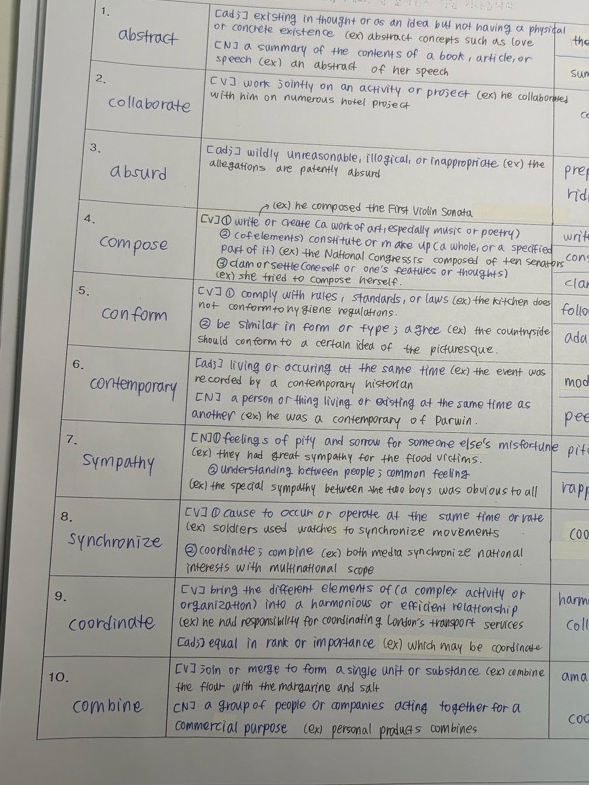 1.
abstract
[adj] existing in thought or as an idea but not having a physical
or concrete existence (ex) abstract concepts such as love
[N] a summary of the contents of a book, article, or
speech (ex) an abstract of her speech
the
sum
2.
collaborate
[V] work jointly on an activity or project (ex) he collaborated
with him on numerous hotel project
co
3.
absurd
[adj] wildly unreasonable, illogical, or inappropriate (ex) the
allegations are patently absurd
prep
rid
4.
compose
(ex) he composed the First Violin Sonata
[V] ① write or create (a work of art, especially music or poetry)
② (of elements) constitute or make up (a whole, or a specified
part of it) (ex) the National Congress is composed of ten senators
③ clam or settle (oneself or one's features or thoughts)
(ex) she tried to compose herself.
writ
cons
clar
5.
conform
[V] ① comply with rules, standards, or laws (ex) the kitchen does
not conform to hygiene regulations.
② be similar in form or type; agree (ex) the countryside
should conform to a certain idea of the picturesque.
follo
ada
6.
contemporary
[adj] living or occuring at the same time (ex) the event was
recorded by a contemporary historian
[N] a person or thing living or existing at the same time as
another (ex) he was a contemporary of Darwin.
mod
pee
7.
sympathy
[N] ① feelings of pity and sorrow for someone else's misfortune
(ex) they had great sympathy for the flood victims.
② understanding between people; common feeling
(ex) the special sympathy between the two boys was obvious to all
pit
rapp
8.
synchronize
[V] ① cause to occur or operate at the same time or rate
(ex) soldiers used watches to synchronize movements
② coordinate; combine (ex) both media synchronize national
interests with multinational scope
coo
9.
coordinate
[V] bring the different elements of (a complex activity or
organization) into a harmonious or efficient relationship
(ex) he had responsibility for coordinating London's transport services
[adj] equal in rank or importance (ex) which may be coordinate
harm
coll
10.
combine
[V] join or merge to form a single unit or substance (ex) combine
the flour with the margarine and salt
[N] a group of people or companies acting together for a
commercial purpose (ex) personal products combines
ama
coo